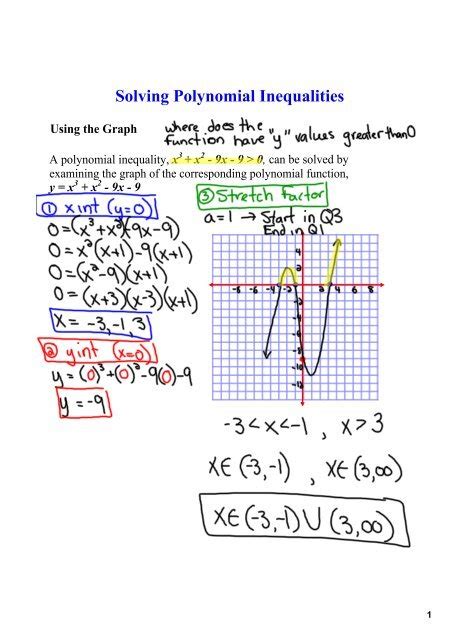 Solving Polynomial Inequalities
Using the Graph
where does the
function have "y" values greater than 0
A polynomial inequality, x³ + x² - 9x - 9 > 0, can be solved by
examining the graph of the corresponding polynomial function,
y = x³ + x² - 9x - 9
① x int (y=0)
0=(x³+x²)(-9x-9)
0=x²(x+1)-9(x+1)
0=(x²-9)(x+1)
0=(x+3)(x-3)(x+1)
x = -3,-1,3
② y int (x=0)
y = (0)³+(0)²-9(0)-9
y = -9
③ Stretch factor
a=1 → Start in Q3
End in Q1
4
2
-8 -6 -4 -2 2 4 6 8
-2
-4
-6
-8
-10
-12
-3<x<-1 , x>3
x∈(-3,-1) , x∈(3,∞)
x∈(-3,-1)∪(3,∞)
1